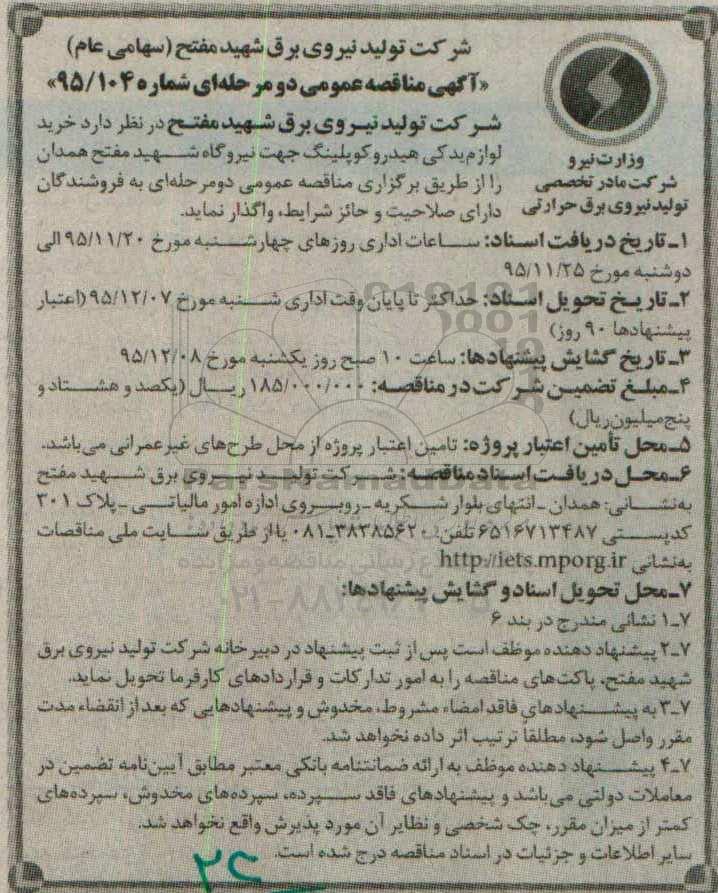 شرکت تولید نیروی برق شهید مفتح (سهامی عام)
«آگهی مناقصه عمومی دو مرحله‌ای شماره ۹۵/۱۰۴»
وزارت نیرو
شرکت مادر تخصصی
تولید نیروی برق حرارتی
شرکت تولید نیروی برق شهید مفتح در نظر دارد خرید
لوازم یدکی هیدروکوپلینگ جهت نیروگاه شهید مفتح همدان
را از طریق برگزاری مناقصه عمومی دومرحله‌ای به فروشندگان
دارای صلاحیت و حائز شرایط، واگذار نماید.
۱ـ تاریخ دریافت اسناد: ساعات اداری روزهای چهارشنبه مورخ ۹۵/۱۱/۲۰ الی
دوشنبه مورخ ۹۵/۱۱/۲۵
۲ـ تاریخ تحویل اسناد: حداکثر تا پایان وقت اداری شنبه مورخ ۹۵/۱۲/۰۷ (اعتبار
پیشنهادها ۹۰ روز)
۳ـ تاریخ گشایش پیشنهادها: ساعت ۱۰ صبح روز یکشنبه مورخ ۹۵/۱۲/۰۸
۴ـ مبلغ تضمین شرکت در مناقصه: ۱۸۵/۰۰۰/۰۰۰ ریال (یکصد و هشتاد و
پنج میلیون ریال)
۵ـ محل تأمین اعتبار پروژه: تامین اعتبار پروژه از محل طرح‌های غیرعمرانی می‌باشد.
۶ـ محل دریافت اسناد مناقصه: شرکت تولید نیروی برق شهید مفتح
به‌نشانی: همدان ـ انتهای بلوار شکریه ـ روبروی اداره امور مالیاتی ـ پلاک ۳۰۱
کدپستی ۶۵۱۶۷۱۳۴۸۷ تلفن: ۳۸۳۸۵۶۲۰ـ۰۸۱ یا از طریق سایت ملی مناقصات
به‌نشانی http://iets.mporg.ir
۷ـ محل تحویل اسناد و گشایش پیشنهادها:
۷ـ۱ نشانی مندرج در بند ۶
۷ـ۲ پیشنهاد دهنده موظف است پس از ثبت پیشنهاد در دبیرخانه شرکت تولید نیروی برق
شهید مفتح، پاکت‌های مناقصه را به امور تدارکات و قراردادهای کارفرما تحویل نماید.
۷ـ۳ به پیشنهادهای فاقد امضاء مشروط، مخدوش و پیشنهادهایی که بعد از انقضاء مدت
مقرر واصل شود، مطلقا ترتیب اثر داده نخواهد شد.
۷ـ۴ پیشنهاد دهنده موظف به ارائه ضمانتنامه بانکی معتبر مطابق آیین‌نامه تضمین در
معاملات دولتی می‌باشد و پیشنهادهای فاقد سپرده، سپرده‌های مخدوش، سپرده‌های
کمتر از میزان مقرر، چک شخصی و نظایر آن مورد پذیرش واقع نخواهد شد.
سایر اطلاعات و جزئیات در اسناد مناقصه درج شده است.